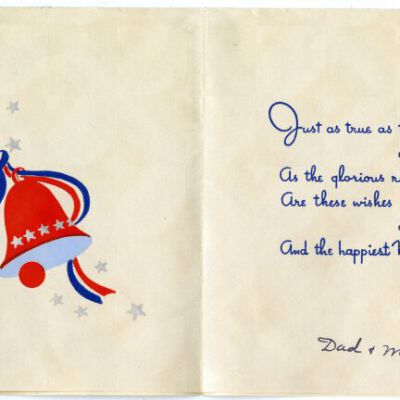 Just as true as
As the glorious
Are these wishes
And the happiest
Dad &